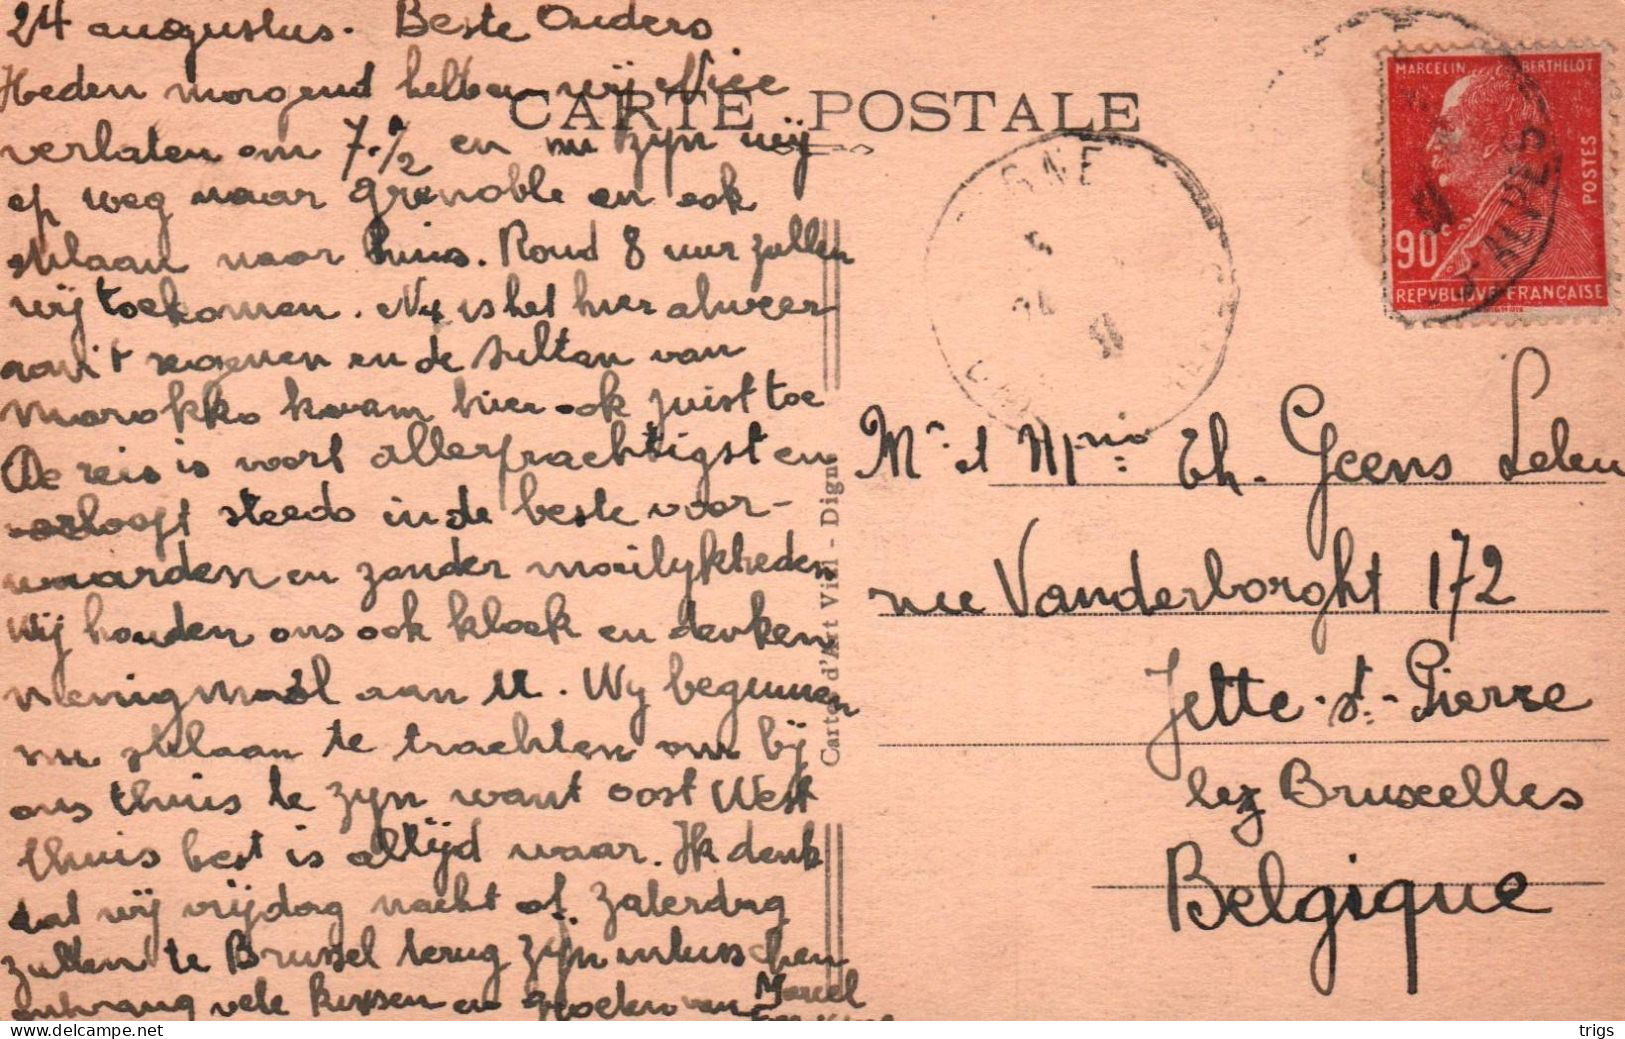 24 augustus. Beste Ouders
Heden morgend hebben wij Nice
verlaten om 7.½ en nu zijn wij
op weg naar Grenoble en ook
stilaan naar huis. Rond 8 uur zullen
wij toekomen. Nu is het hier alweer
aan't regenen en de Sultan van
Marokko kwam hier ook juist toe
De reis is voort allerprachtigst en
verloopt steeds in de beste voor-
waarden en zonder moeilijkheden
Wij houden ons ook kloek en denken
menigmaal aan U. Wij beginnen
nu stilaan te trachten om bij
ons thuis te zijn want oost West
thuis best is altijd waar. Ik denk
dat wij vrijdag nacht of zaterdag
zullen te Brussel terug zijn intusschen
ontvang vele kussen en groeten van Marcel
CARTE POSTALE
Cartes d'Art Vial - Digne
MARCELIN BERTHELOT
POSTES
90c
REPVBLIQVE FRANÇAISE
DIGNE
ALPES
Mr et Mme Th. Geens Leleu
rue Vanderborght 172
Jette-St-Pierre
lez Bruxelles
Belgique
delcampe.net
trigs